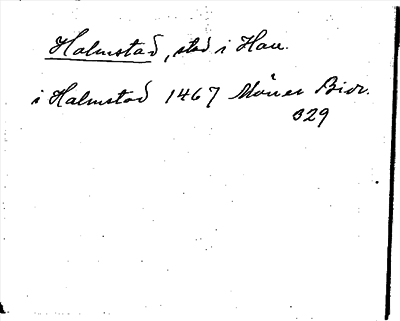 Halmstad, stad i Hall.
i Halmstad 1467 Bidr.
329